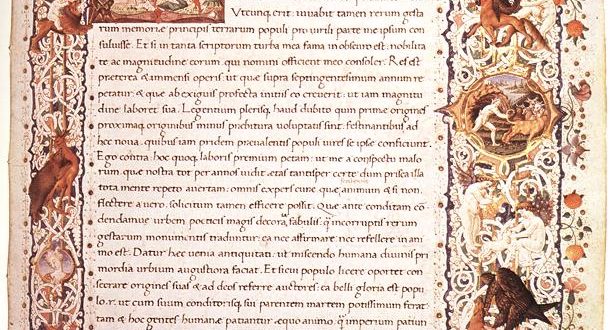 Utcunq; erit: iuvabit tamen rerum gesta
rum memoriæ principis terrarum populi pro virili parte me ipsum con
suluisse. Et si in tanta scriptorum turba mea fama in obscuro est: nobilita
te ac magnitudine eorum qui nomini officient meo consoler. Res est
præterea & immensi operis ut quæ supra septingentesimum annum re
petatur: & quæ ab exiguis profecta initiis eo creverit: ut iam magnitu
dine laboret sua. Legentium plerisq; haud dubito quin primæ origines
proximaq; originibus minus præbitura voluptatis sint: festinantibus ad
hec nova: quibus iam pridem prævalentis populi vires se ipse conficiunt.
Ego contra: hoc quoq; laboris premium petam: ut me a conspectu malo
rum quæ nostra tot per annos vidit ætas tantisper certe dum prisca illa
tota mente repeto avertam: omnis expers curæ quæ animum & si non
flectere a vero: solicitum tamen efficere possit. Quæ ante conditam cõ
dendamve urbem poeticis magis decora fabulis: q̃ incorruptis rerum
gestarum monumentis traduntur: ea nec affirmare: nec refellere in ani
mo est. Datur hec venia antiquitati: ut miscendo humana divinis pri
mordia urbium augustiora faciat. Et si cui populo licere oportet con
secrare origines suas & ad deos referre auctores: ea belli gloria est popu
lo. r. ut cum suum conditorisq; sui parentem martem potissimum ferat
tam & hoc gentes humanæ patiantur æquo animo: q̃ imperium patiun